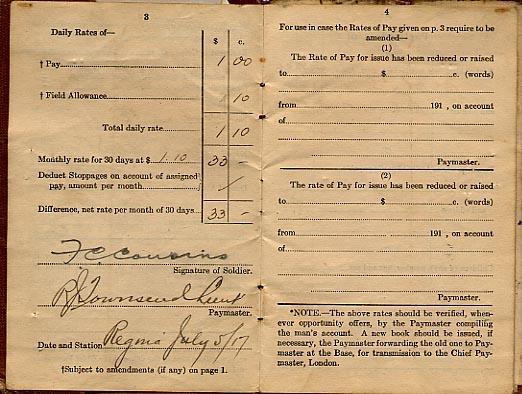 3
Daily Rates of—
$ c.
† Pay 1 00
† Field Allowance 10
Total daily rate 1 10
Monthly rate for 30 days at $ 1.10 33 –
Deduct Stoppages on account of assigned
pay, amount per month
Difference, net rate per month of 30 days 33 –
F C Cousins
Signature of Soldier.
R J Townsend Lieut
Paymaster.
Date and Station Regina July 5/17
†Subject to amendments (if any) on page 1.
4
For use in case the Rates of Pay given on p. 3 require to be
amended—
(1)
The Rate of Pay for issue has been reduced or raised
to $ c. (words)
from 191 , on account
of
Paymaster.
(2)
The rate of Pay for issue has been reduced or raised
to $ c. (words)
from 191 , on account
of
Paymaster.
*NOTE.—The above rates should be verified, when-
ever opportunity offers, by the Paymaster compiling
the man's account. A new book should be issued, if
necessary, the Paymaster forwarding the old one to Pay-
master at the Base, for transmission to the Chief Pay-
master, London.